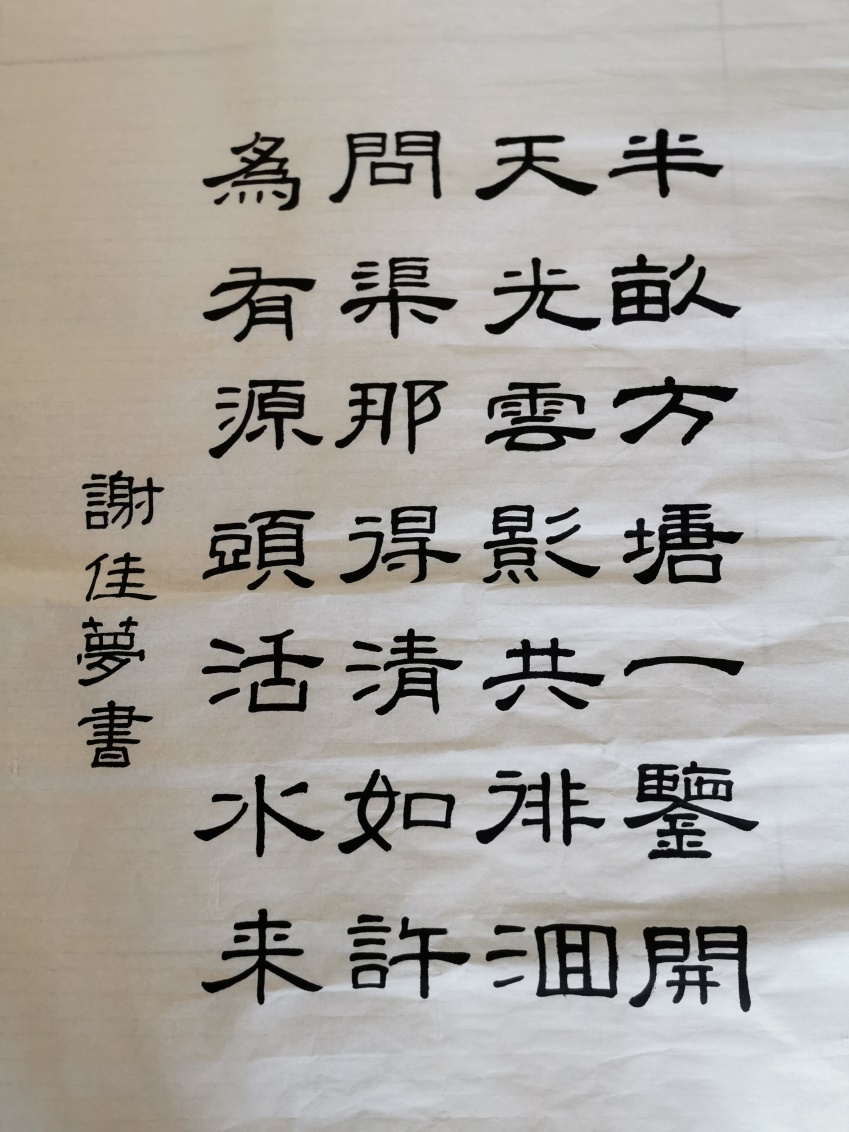 半畝方塘一鑒開
天光雲影共徘洄
問渠那得清如許
為有源頭活水来
謝佳夢書